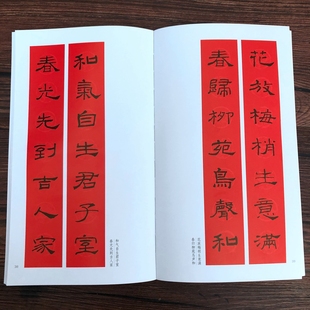 花放梅梢生意滿
春歸柳苑鳥聲和
和氣自生君子室
春光先到吉人家